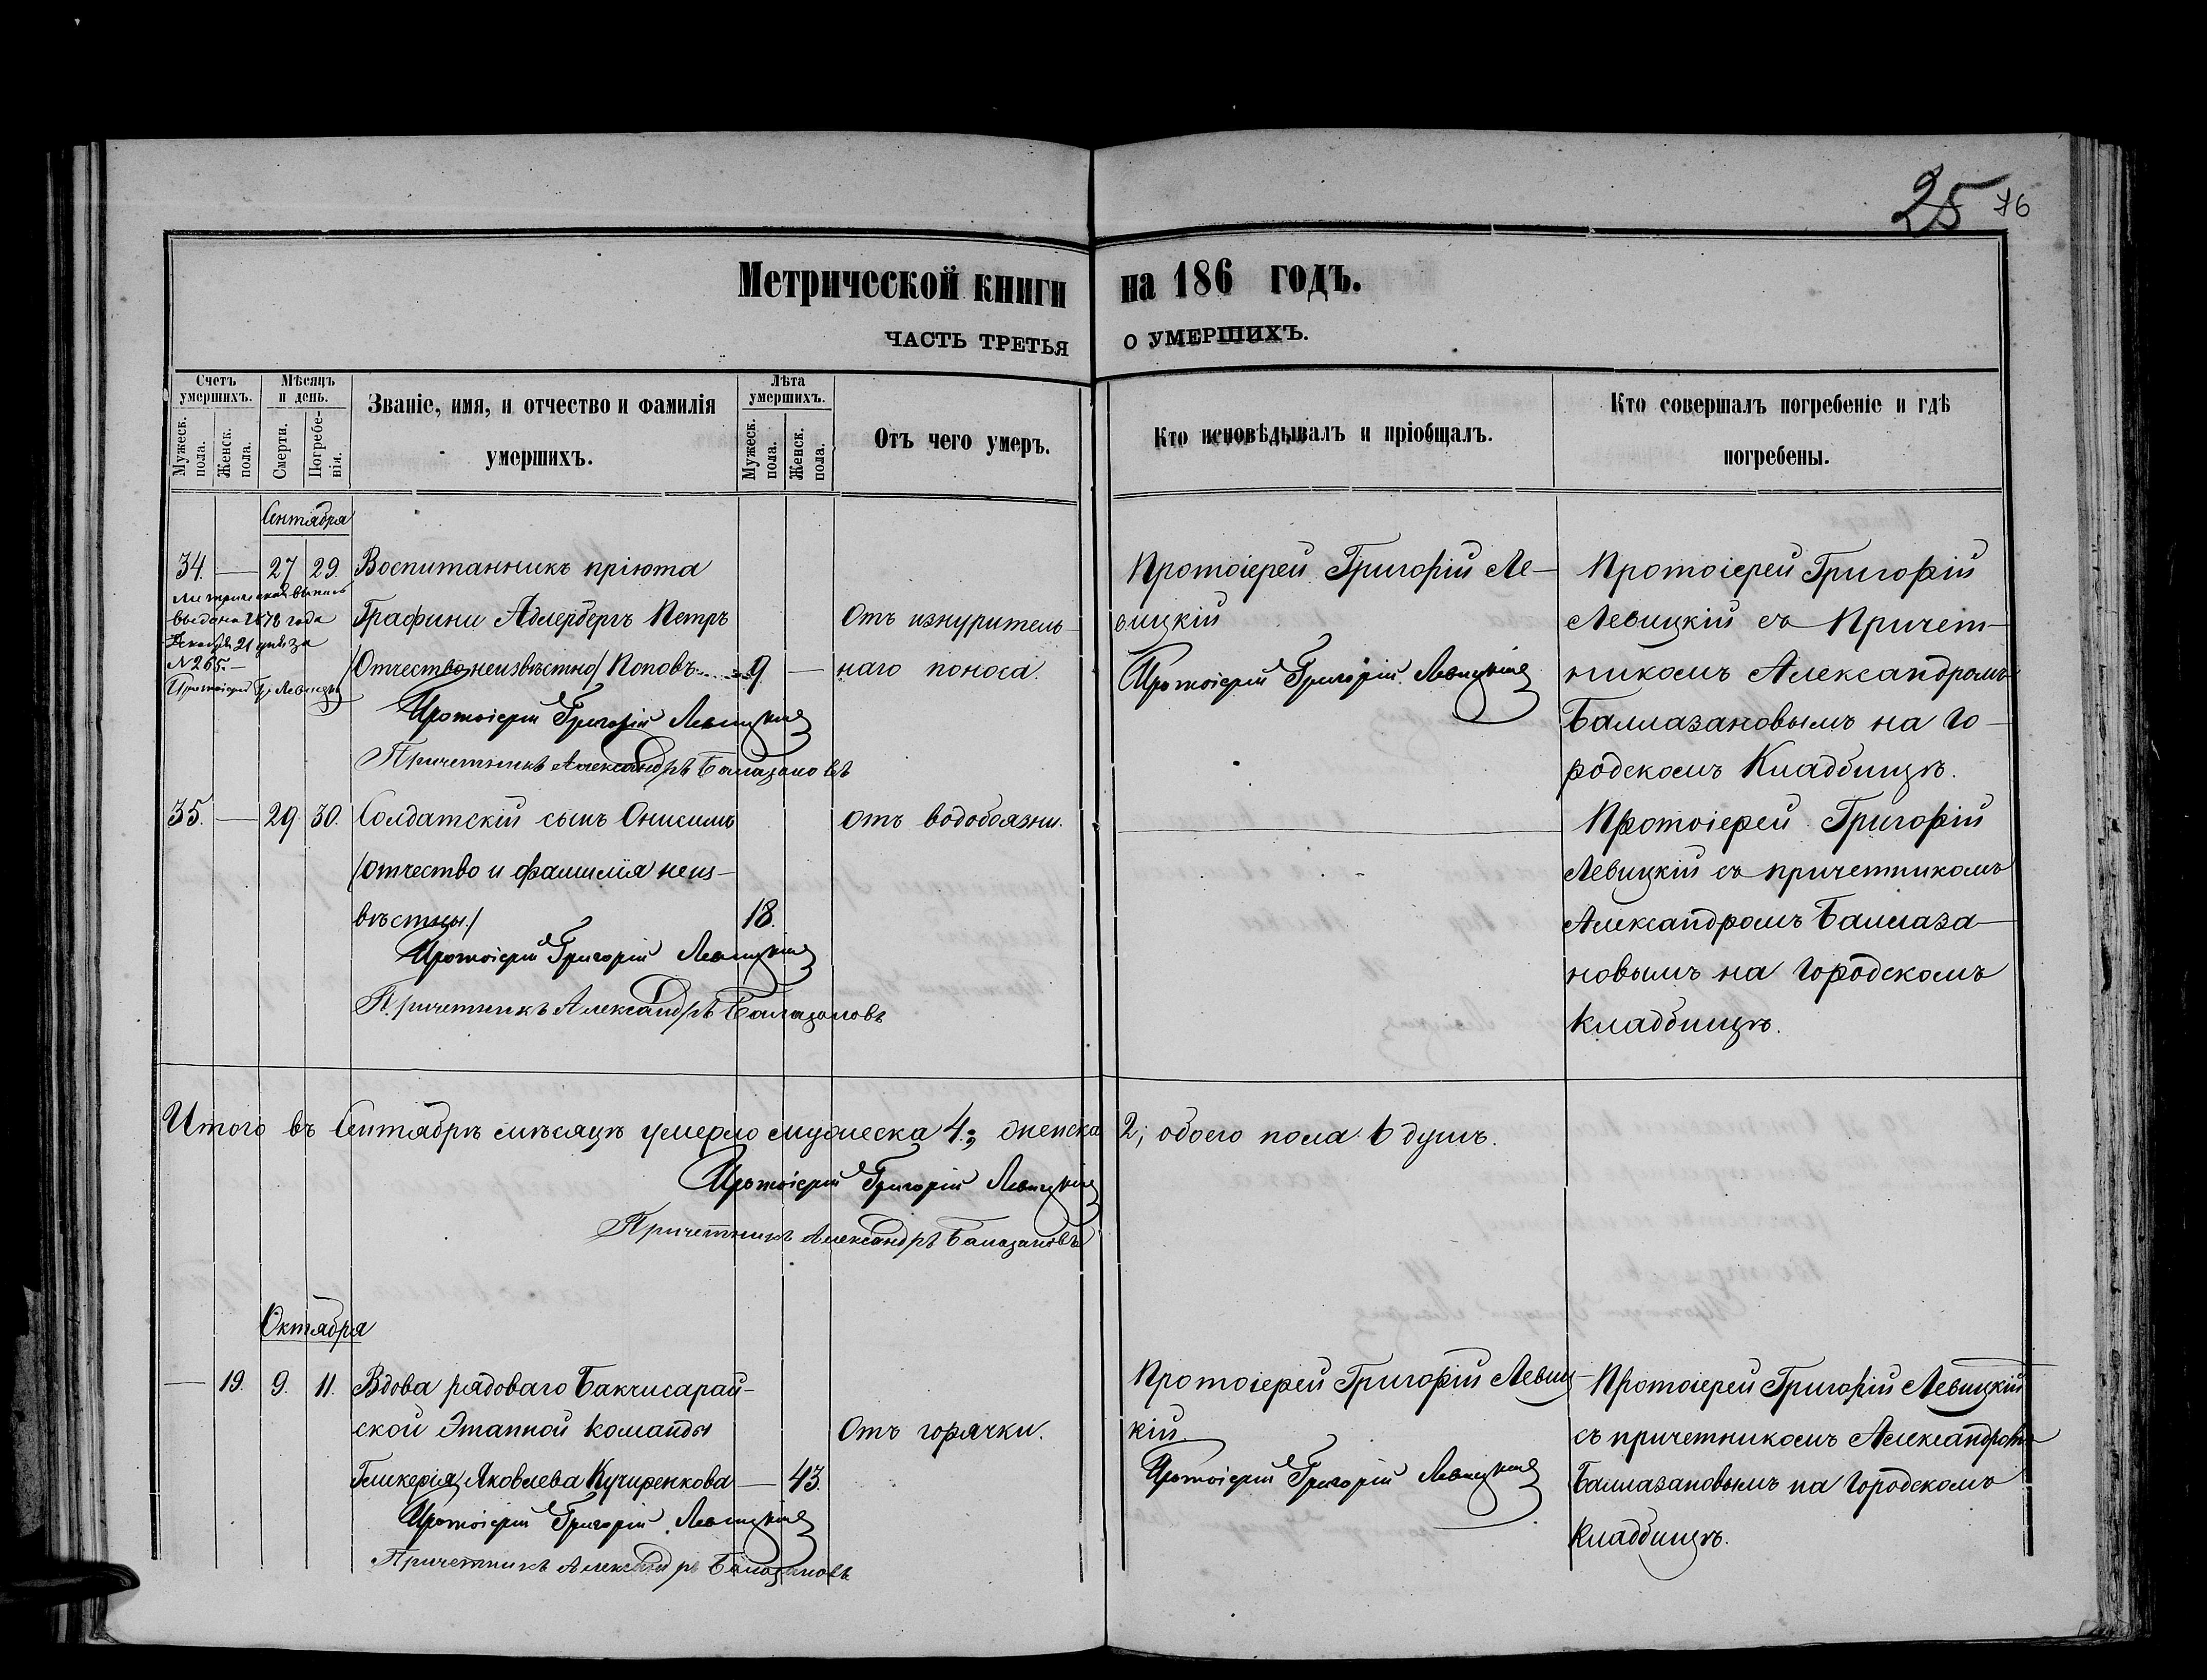 25 76
Метрической книги на 186 годъ.
ЧАСТЬ ТРЕТЬЯ О УМЕРШИХЪ.
Счетъ умершихъ.
Мужеск. пола.
Женск. пола.
Мѣсяцъ и день.
Смерти.
Погребенія.
Званіе, имя, и отчество и фамилія
умершихъ.
Лѣта умершихъ.
Мужеск. пола.
Женск. пола.
Отъ чего умеръ.
Кто исповѣдывалъ и пріобщалъ.
Кто совершалъ погребеніе и гдѣ
погребены.
Сентября
34. — 27 29. Воспитанникъ пріюта
Графини Адлербергъ Петръ
/Отчество неизвѣстно/ Поповъ 9. —
Протоіерей Григорій Левицкій
Причетникъ Александръ Балмазановъ
выдана 1878 года
Декабря 21 дня за
№ 265.—
Протоіерей Гр. Левицкій
Отъ изнуритель-
наго поноса.
Протоіерей Григорій Ле-
вицкій
Протоіерей Григорій Левицкій
Протоіерей Григорій
Левицкій съ Причет-
никомъ Александромъ
Балмазановымъ на Го-
родскомъ Кладбищѣ.
35. — 29 30. Солдатскій сынъ Онисимъ
/отчество и фамилія неиз-
вѣстны/ 18.
Протоіерей Григорій Левицкій
Причетникъ Александръ Балмазановъ
Отъ водобоязни.
Протоіерей Григорій
Левицкій съ причетникомъ
Александромъ Балмаза-
новымъ на Городскомъ
кладбищѣ.
Итого въ Сентябрѣ мѣсяцѣ умерло мужеска 4; женска 2; обоего пола 6 душъ.
Протоіерей Григорій Левицкій
Причетникъ Александръ Балмазановъ
Октября
— 19. 9. 11. Вдова рядоваго Бакчисарай-
ской Этапной команды
Гликерія Яковлева Кучиренкова — 43.
Протоіерей Григорій Левицкій
Причетникъ Александръ Балмазановъ
Отъ горячки.
Протоіерей Григорій Левиц-
кій.
Протоіерей Григорій Левицкій
Протоіерей Григорій Левицкій
съ причетникомъ Александромъ
Балмазановымъ на Городскомъ
Кладбищѣ.